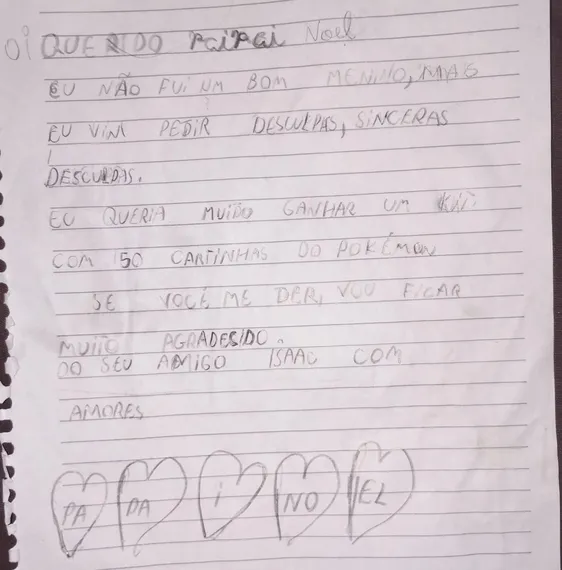 oi QUERIDO PaiPai Noel
EU NÃO FUi UM BOM MENINO, MAS
EU VIM PEDIR DESCULPAS, SINCERAS
DESCULPAS.
EU QUERIA MUITO GANHAR UM Kit
COM 50 CARTINHAS DO POKÉMON
SE VOCÊ ME DER, VOU FICAR
MUITO AGRADESIDO.
DO SEU AMIGO ISAAC COM
AMORES
PA PA i NO EL